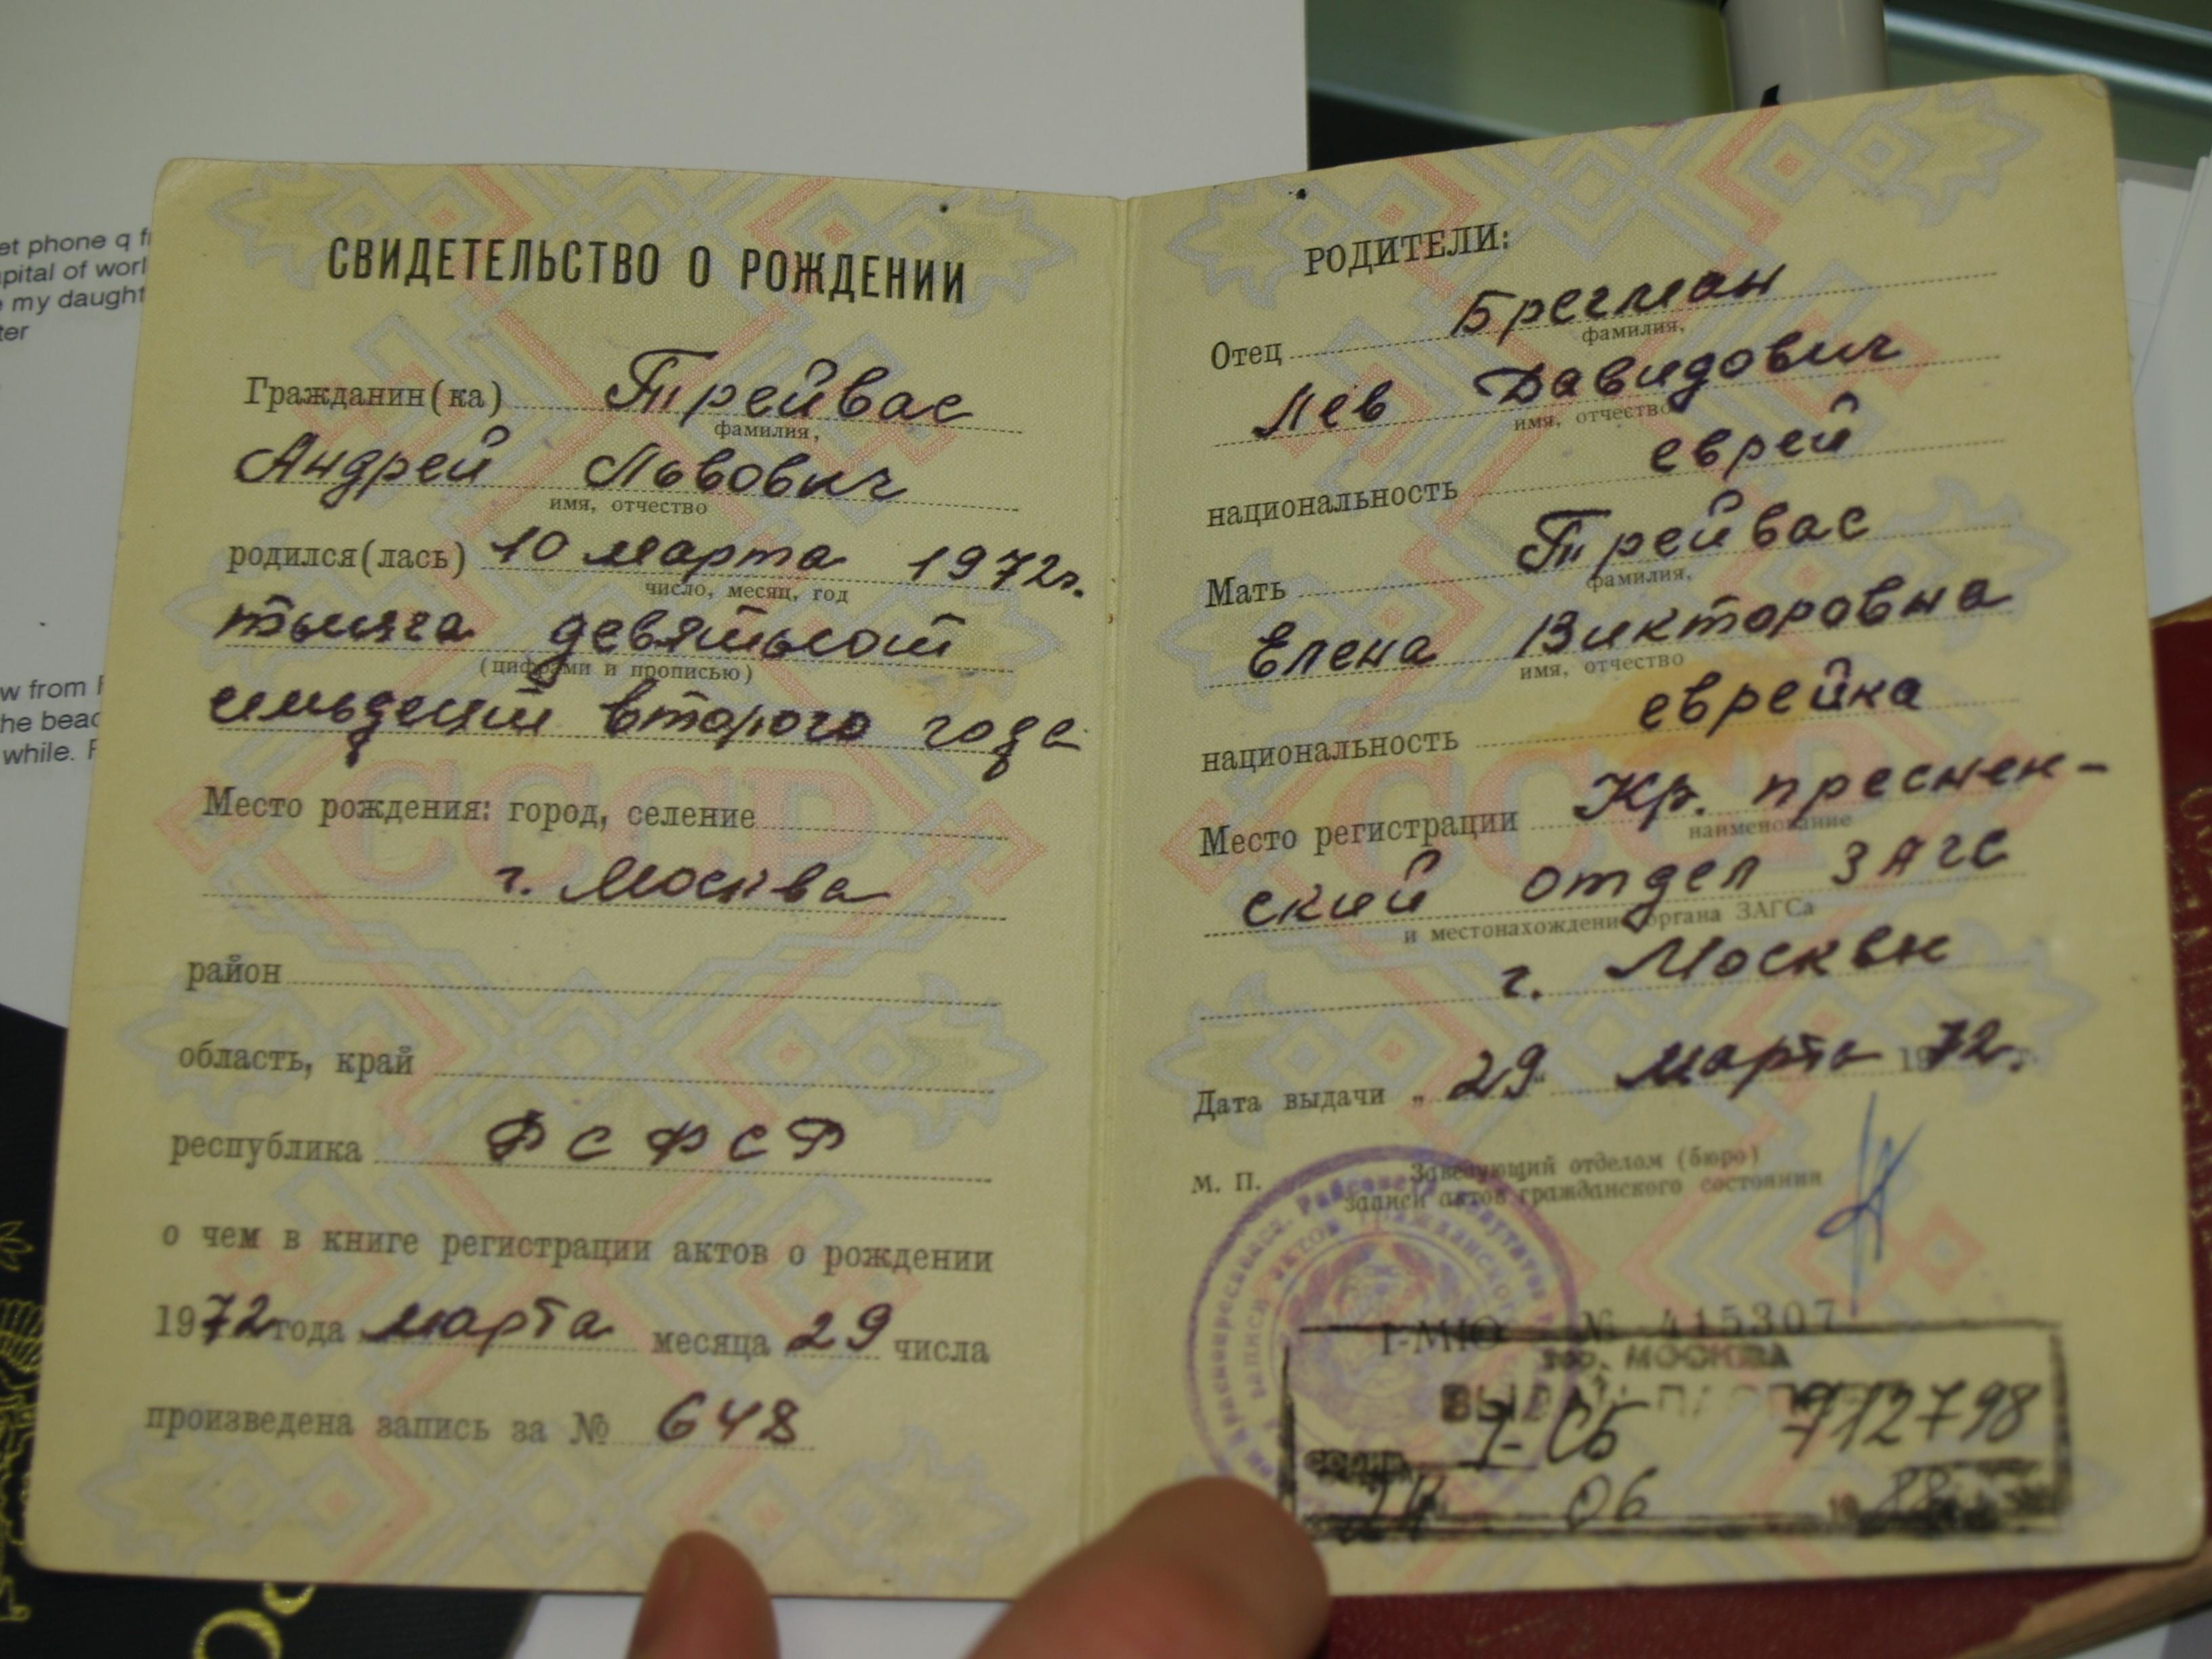 et phone q f
apital of worl
e my daught
ter
w from F
the beac
while. F
СВИДЕТЕЛЬСТВО О РОЖДЕНИИ
Гражданин(ка) Трейвас
фамилия,
Андрей Львович
имя, отчество
родился(лась) 10 марта 1972г.
число, месяц, год
тысяча девятьсот
(цифрами и прописью)
семьдесят второго года
Место рождения: город, селение
г. Москва
район
область, край
республика РСФСР
о чем в книге регистрации актов о рождении
1972 года марта месяца 29 числа
произведена запись за № 648
РОДИТЕЛИ:
Отец Брегман
фамилия,
Лев Давидович
имя, отчество
национальность еврей
Мать Трейвас
фамилия,
Елена Викторовна
имя, отчество
национальность еврейка
Место регистрации Кр. преснен-
наименование
ский отдел ЗАГС
и местонахождение органа ЗАГСа
г. Москвы
Дата выдачи „29" марта 1972 г.
М. П. Заведующий отделом (бюро)
записи актов гражданского состояния
I-МЮ № 415307
гор. МОСКВА
ВЫДАН ПАСПОРТ
серии I-СБ 712798
06 1988